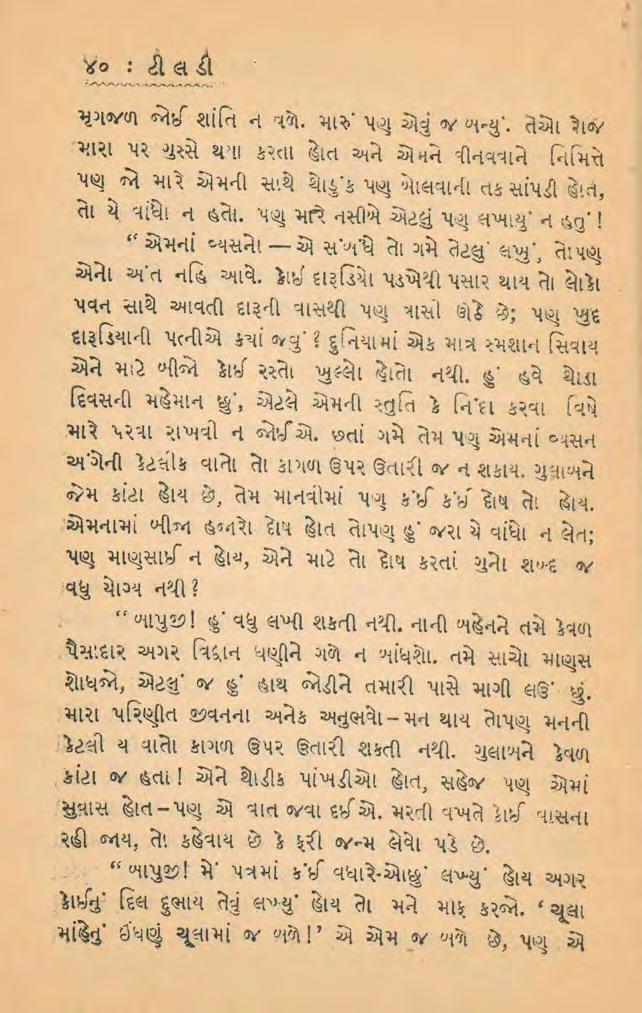 ૪૦ : ટીલડી
મૃગજળ જોઈ શાંતિ ન વળે. મારું પણ એવું જ બન્યું. તેઓ રોજ
મારા પર ગુસ્સે થયા કરતા હોત અને એમને વીનવવાને નિમિત્તે
પણ જો મારે એમની સાથે થોડુંક પણ બોલવાની તક સાંપડી હોત,
તો યે વાંધો ન હતો. પણ મારે નસીબે એટલું પણ લખાયું ન હતું !
“ એમનાં વ્યસનો — એ સંબંધે તો ગમે તેટલું લખું, તોપણ
એનો અંત નહિ આવે. કોઈ દારૂડિયો પડખેથી પસાર થાય તો લોકો
પવન સાથે આવતી દારૂની વાસથી પણ ત્રાસી ઊઠે છે; પણ ખુદ
દારૂડિયાની પત્નીએ કયાં જવું ? દુનિયામાં એક માત્ર સ્મશાન સિવાય
એને માટે બીજો કોઈ રસ્તો ખુલ્લો હોતો નથી. હું હવે થોડા
દિવસની મહેમાન છું, એટલે એમની સ્તુતિ કે નિંદા કરવા વિષે
મારે પરવા રાખવી ન જોઈએ. છતાં ગમે તેમ પણ એમનાં વ્યસન
અંગેની કેટલીક વાતો તો કાગળ ઉપર ઉતારી જ ન શકાય. ગુલાબને
જેમ કાંટા હોય છે, તેમ માનવીમાં પણ કંઈ કંઈ દોષ તો હોય.
એમનામાં બીજા હજારો દોષ હોત તોપણ હું જરા યે વાંધો ન લેત;
પણ માણસાઈ ન હોય, એને માટે તો દોષ કરતાં ગુનો શબ્દ જ
વધુ યોગ્ય નથી ?
“ બાપુજી ! હું વધુ લખી શકતી નથી. નાની બહેનને તમે કેવળ
પૈસાદાર અગર વિદ્વાન ધણીને ગળે ન બાંધશો. તમે સાચો માણસ
શોધજો, એટલું જ હું હાથ જોડીને તમારી પાસે માગી લઉં છું.
મારા પરિણીત જીવનના અનેક અનુભવો – મન થાય તોપણ મનની
કેટલી ય વાતો કાગળ ઉપર ઉતારી શકતી નથી. ગુલાબને કેવળ
કાંટા જ હતા ! એને થોડીક પાંખડીઓ હોત, સહેજ પણ એમાં
સુવાસ હોત – પણ એ વાત જવા દઈએ. મરતી વખતે કોઈ વાસના
રહી જાય, તો કહેવાય છે કે ફરી જન્મ લેવો પડે છે.
“ બાપુજી! મેં પત્રમાં કંઈ વધારે-ઓછું લખ્યું હોય અગર
કોઈનું દિલ દુભાય તેવું લખ્યું હોય તો મને માફ કરજો. ‘ ચૂલા
માંહેનું ઈંધણું ચૂલામાં જ બળે !’ એ એમ જ બળે છે, પણ એ